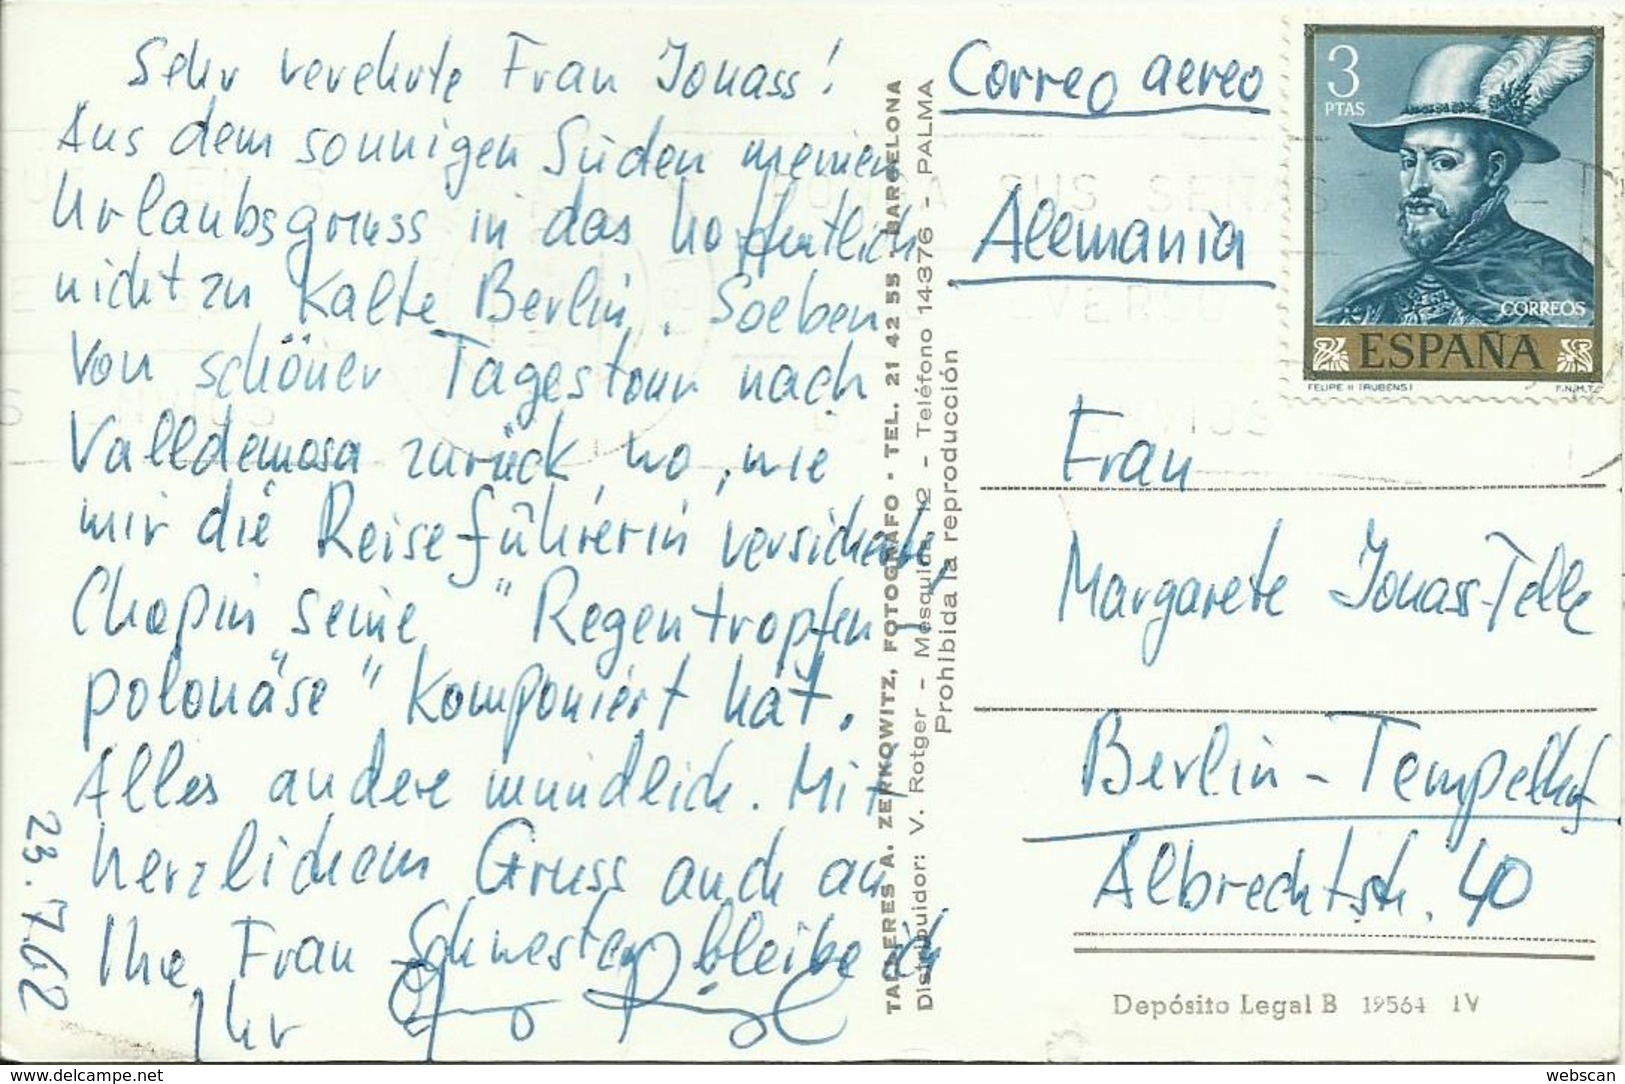 Sehr verehrte Frau Jonass!
Aus dem sonnigen Süden meinen
Urlaubsgruss in das hoffentlich
nicht zu kalte Berlin. Soeben
von schöner Tagestour nach
Valldemosa zurück, wo, wie
mir die Reiseführerin versicherte,
Chopin seine "Regentropfen-
polonäse" komponiert hat.
Alles andere mündlich. Mit
herzlichem Gruss auch an
Ihre Frau Schwester bleibe ich
Ihr
23.7.62
TALLERES A. ZERKOWITZ, FOTOGRAFO - TEL. 21 42 55 - BARCELONA
Distribuidor: V. Rotger - Mesquida 12 - Teléfono 14376 - PALMA
Prohibida la reproducción
Correo aereo
Alemania
3
PTAS
CORREOS
ESPAÑA
FELIPE II (RUBENS)
F.N.M.T.
Frau
Margarete Jonass-Telle
Berlin-Tempelhof
Albrechtstr. 40
Depósito Legal B 19564 IV
http://www.delcampe.net
webscan